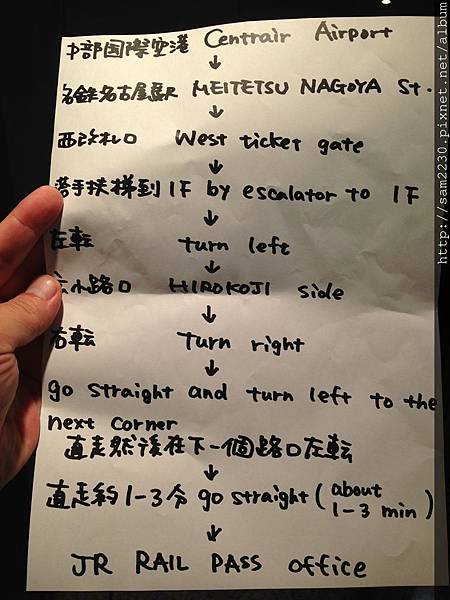 中部国際空港 Centrair Airport
↓
名鉄名古屋駅 MEITETSU NAGOYA St.
↓
西改札口 West ticket gate
↓
搭手扶梯到1F by escalator to 1F
↓
左転 turn left
↓
広小路口 HIROKOJI side
↓
右転 turn right
↓
go straight and turn left to the
next corner
直走然後在下一個路口左転
↓
直走約1-3分 go straight (about
1-3 min)
↓
JR RAIL PASS office
http://sam2230.pixnet.net/album